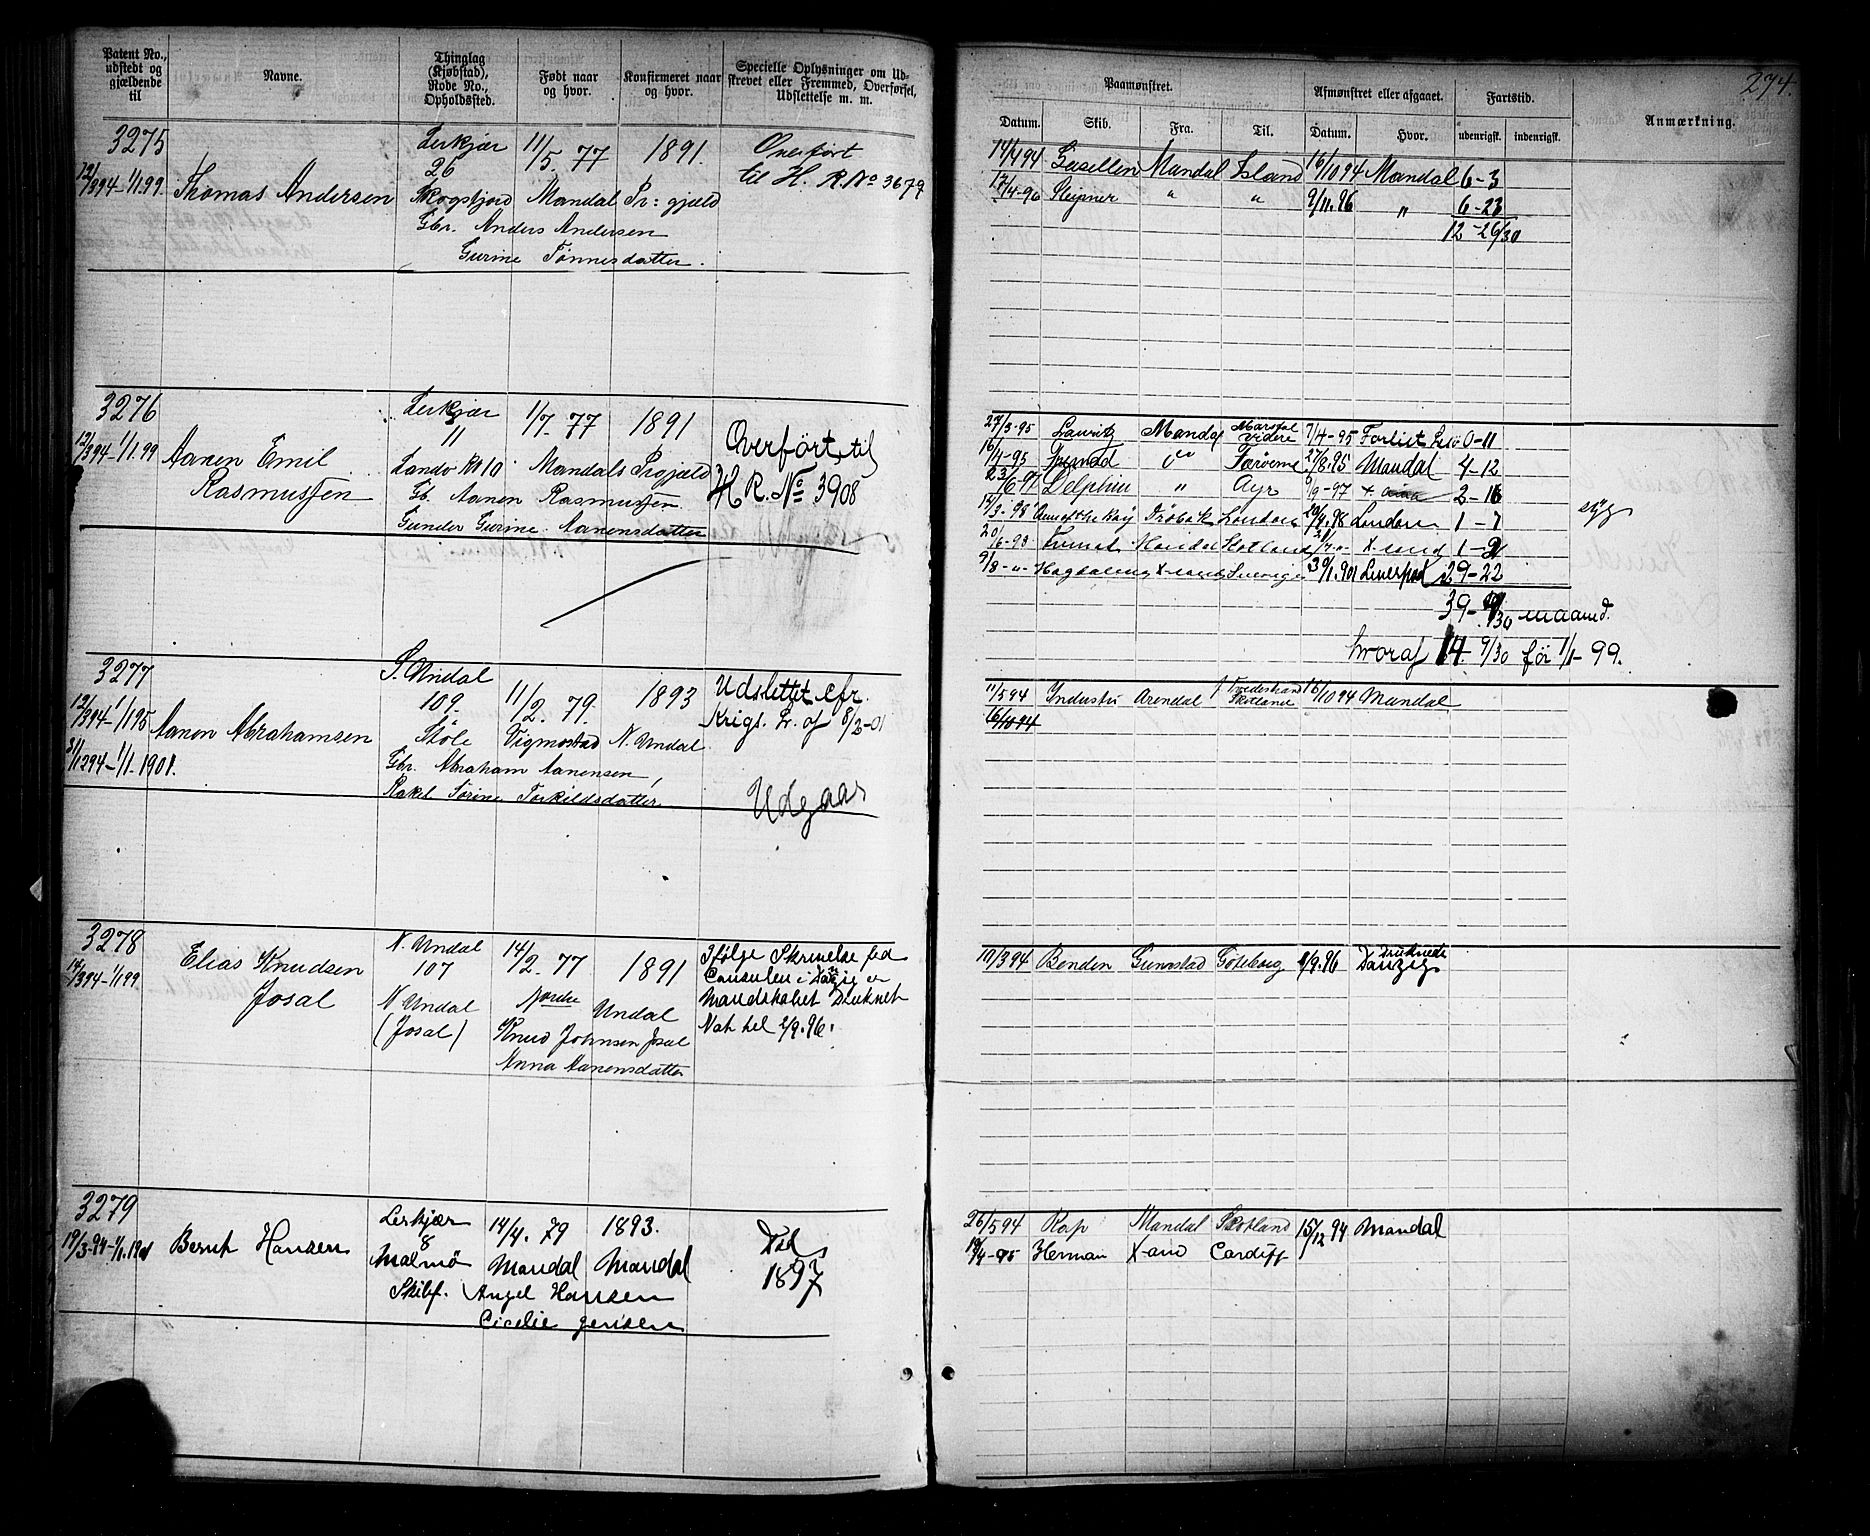 Patent No., udstedt og gjældende til
Navne.
Thinglag (Kjøbstad), Rode No., Opholdssted.
Født naar og hvor.
Konfirmeret naar og hvor.
Specielle Oplysninger om Udskrevet eller Fremmed, Overførsel, Udslettelse m. m.
3275 Lerkjær 11/5. 77 1891. Overført
12/3 94-1/1 99. Thomas Andersen 26 til H. R. No 3679
Skogsfjord Mandal Pr: gjæld
Gbr. Anders Andersen
Gurine Tønnesdatter.
3276 Lerkjær 1/7. 77 1891 Overført til
12/3 94-1/1 99 Aanen Emil 11 H R. No 3908
Rasmussen Mandals Prgjæld
Gb. Aanen Rasmussen
Gunder Gurine Aanensdatter
3277 S. Undal 11/2. 79. 1893 Udslettet efr.
12/3 94-1/1 95 Aanon Abrahamsen 109. Krigs. L. of 8/2-01
Støle Vigmostad N. Undal
31/12 94-1/1-1901. Gbr. Abraham Aanensen,
Rakel Sørine Torkildsdatter Udgaar
3278 Elias Knudsen N. Undal 14/2. 77 1891 Ifølge Skrivelse fra
14/3 94-1/1 99 Josal 107 Consulen i Danzig er
N. Undal Nordre Undal Mandskabet Druknet
(Josal) Knud Johnsen Josal Nat til 2/9. 96.
Anna Aanensdatter
3279 Lerkjær 14/4. 79 1893. Død
19/3-94-1/1.1901 Bernt Hansen 8 1897
Malmø Mandal Mandal
Skibf. Angel Hansen
Cicelie Jensen
274.
Paamønstret.
Afmønstret eller afgaaet.
Fartstid.
Anmærkning.
Datum. Skib. Fra. Til. Datum. Hvor. udenrigsk. indenrigsk.
14/4 94 Gasellen Mandal Island 16/10 94 Mandal 6-3
17/4-96 Sleipner " " 9/11. 96 " 6-23
12-26/30
27/3-95 Lauritz Mandal Marstal videre 7/4-95 Forlist 0-11
16/4-95 Færøerne 27/8. 95 Mandal 4-12
23/6 97 Delphin " Ayr 9/9-97 2-16
Drøbak London London 1-7
20/6-98 Mandal Skotland X-sand 1-2
9/8-"- Magdalena X-sand Sverige 30/1. 901 Liverpool 29-22
39- /30 maaned.
hvoraf 14. 9/30 før 1/1-99.
11/5 94 Industri Arendal Tvedestrand Skotland 16/10 94 Mandal
16/10 94
10/3 94 Benden Grimstad Göteborg 2/9. 96 Druknede Danzig
26/5 94 Rap Mandal Skotland 15/12 94 Mandal
Herman X-sand Cardiff